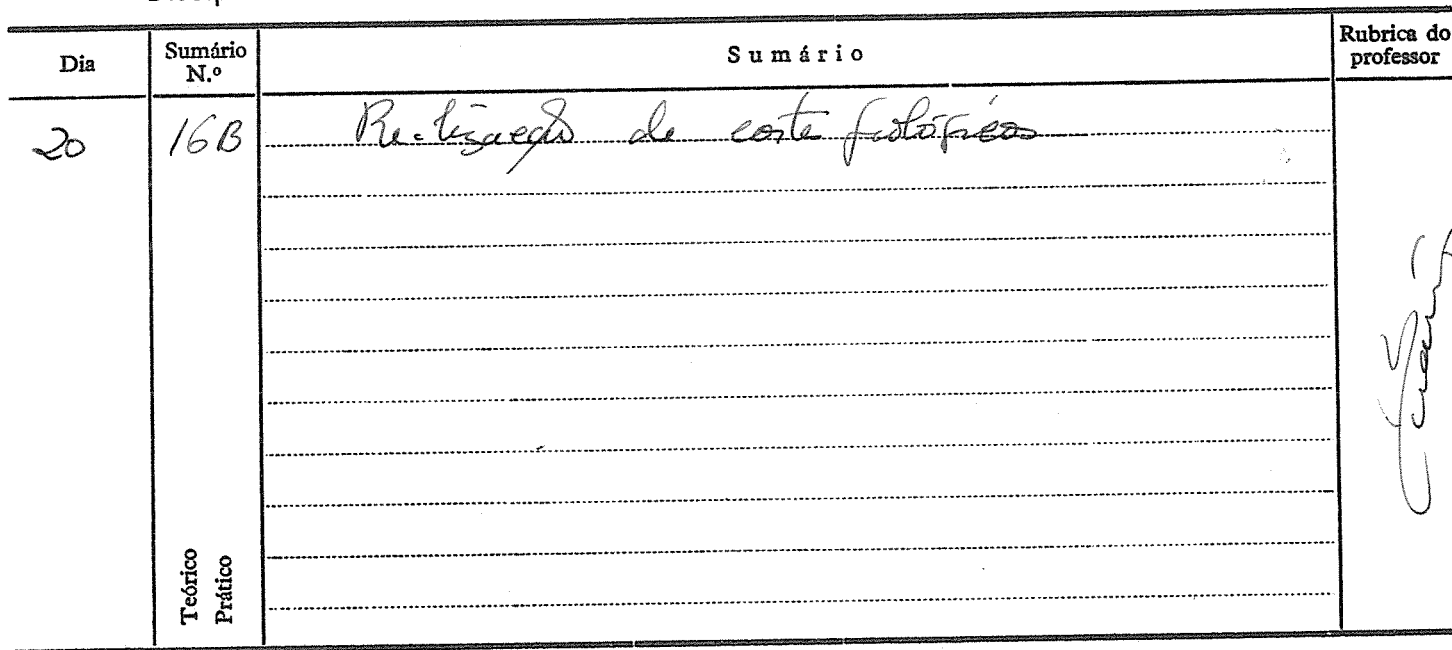 Dia
Sumário
N.º
Sumário
Rubrica do
professor
20
16B
Realização de cortes geológicos
Teórico
Prático